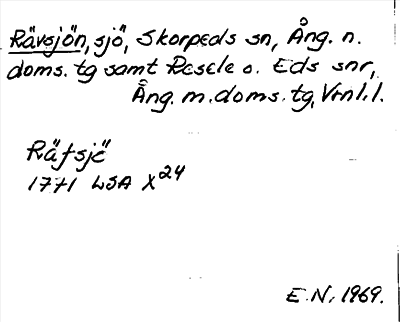 Rävsjön, sjö, Skorpeds sn, Ång. n.
doms. tg samt Resele o. Eds snr,
Ång. m. doms. tg, Vrnl. l.
Räfsjö
1771 LSA X24
E.N. 1969.